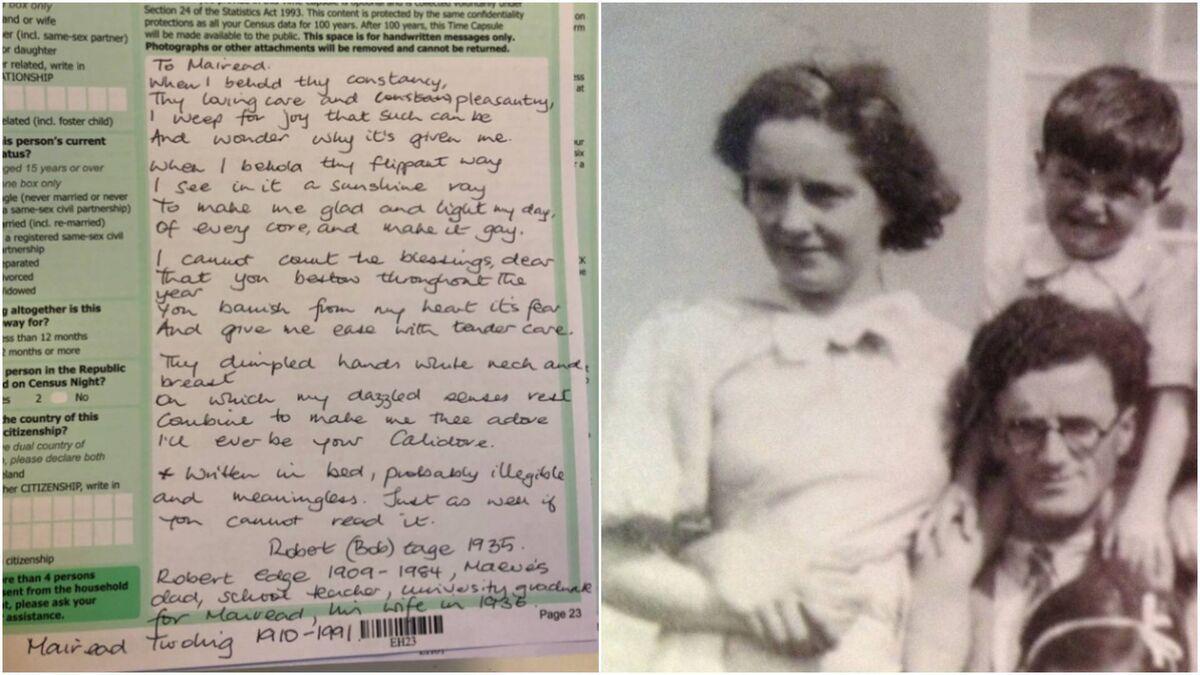 box only
and or wife
er (incl. same-sex partner)
or daughter
r related, write in
ATIONSHIP
elated (incl. foster child)
is person's current
atus?
ged 15 years or over
ne box only
gle (never married or never
a same-sex civil partnership)
rried (incl. re-married)
a registered same-sex civil
rtnership
eparated
vorced
idowed
g altogether is this
way for?
ess than 12 months
2 months or more
person in the Republic
d on Census Night?
es 2 No
he country of this
citizenship?
e dual country of
, please declare both
land
her CITIZENSHIP, write in
citizenship
re than 4 persons
sent from the household
t, please ask your
assistance.
Section 24 of the Statistics Act 1993. This content is protected by the same confidentiality
protections as all your Census data for 100 years. After 100 years, this Time Capsule
will be made available to the public. This space is for handwritten messages only.
Photographs or other attachments will be removed and cannot be returned.
To Mairead.
When I behold thy constancy,
Thy loving care and constant pleasantry,
I weep for joy that such can be
And wonder why it's given me.
When I behold thy flippant way
I see in it a sunshine ray
To make me glad and light my day,
Of every core, and make it gay.
I cannot count the blessings, dear
That you bestow throughout the
year
You banish from my heart it's fear
And give me ease with tender care.
Thy dimpled hands white neck and
breast
on which my dazzled senses rest
Combine to make me thee adore
I'll ever be your Calidore.
* Written in bed, probably illegible
and meaningless. Just as well if
you cannot read it.
Robert (Bob) tage 1935.
Robert Edge 1909-1984, Maeve's
dad, school teacher, university graduate
for Mairead, his wife in 1936.
Page 23
Mairead 1910-1991
EH23